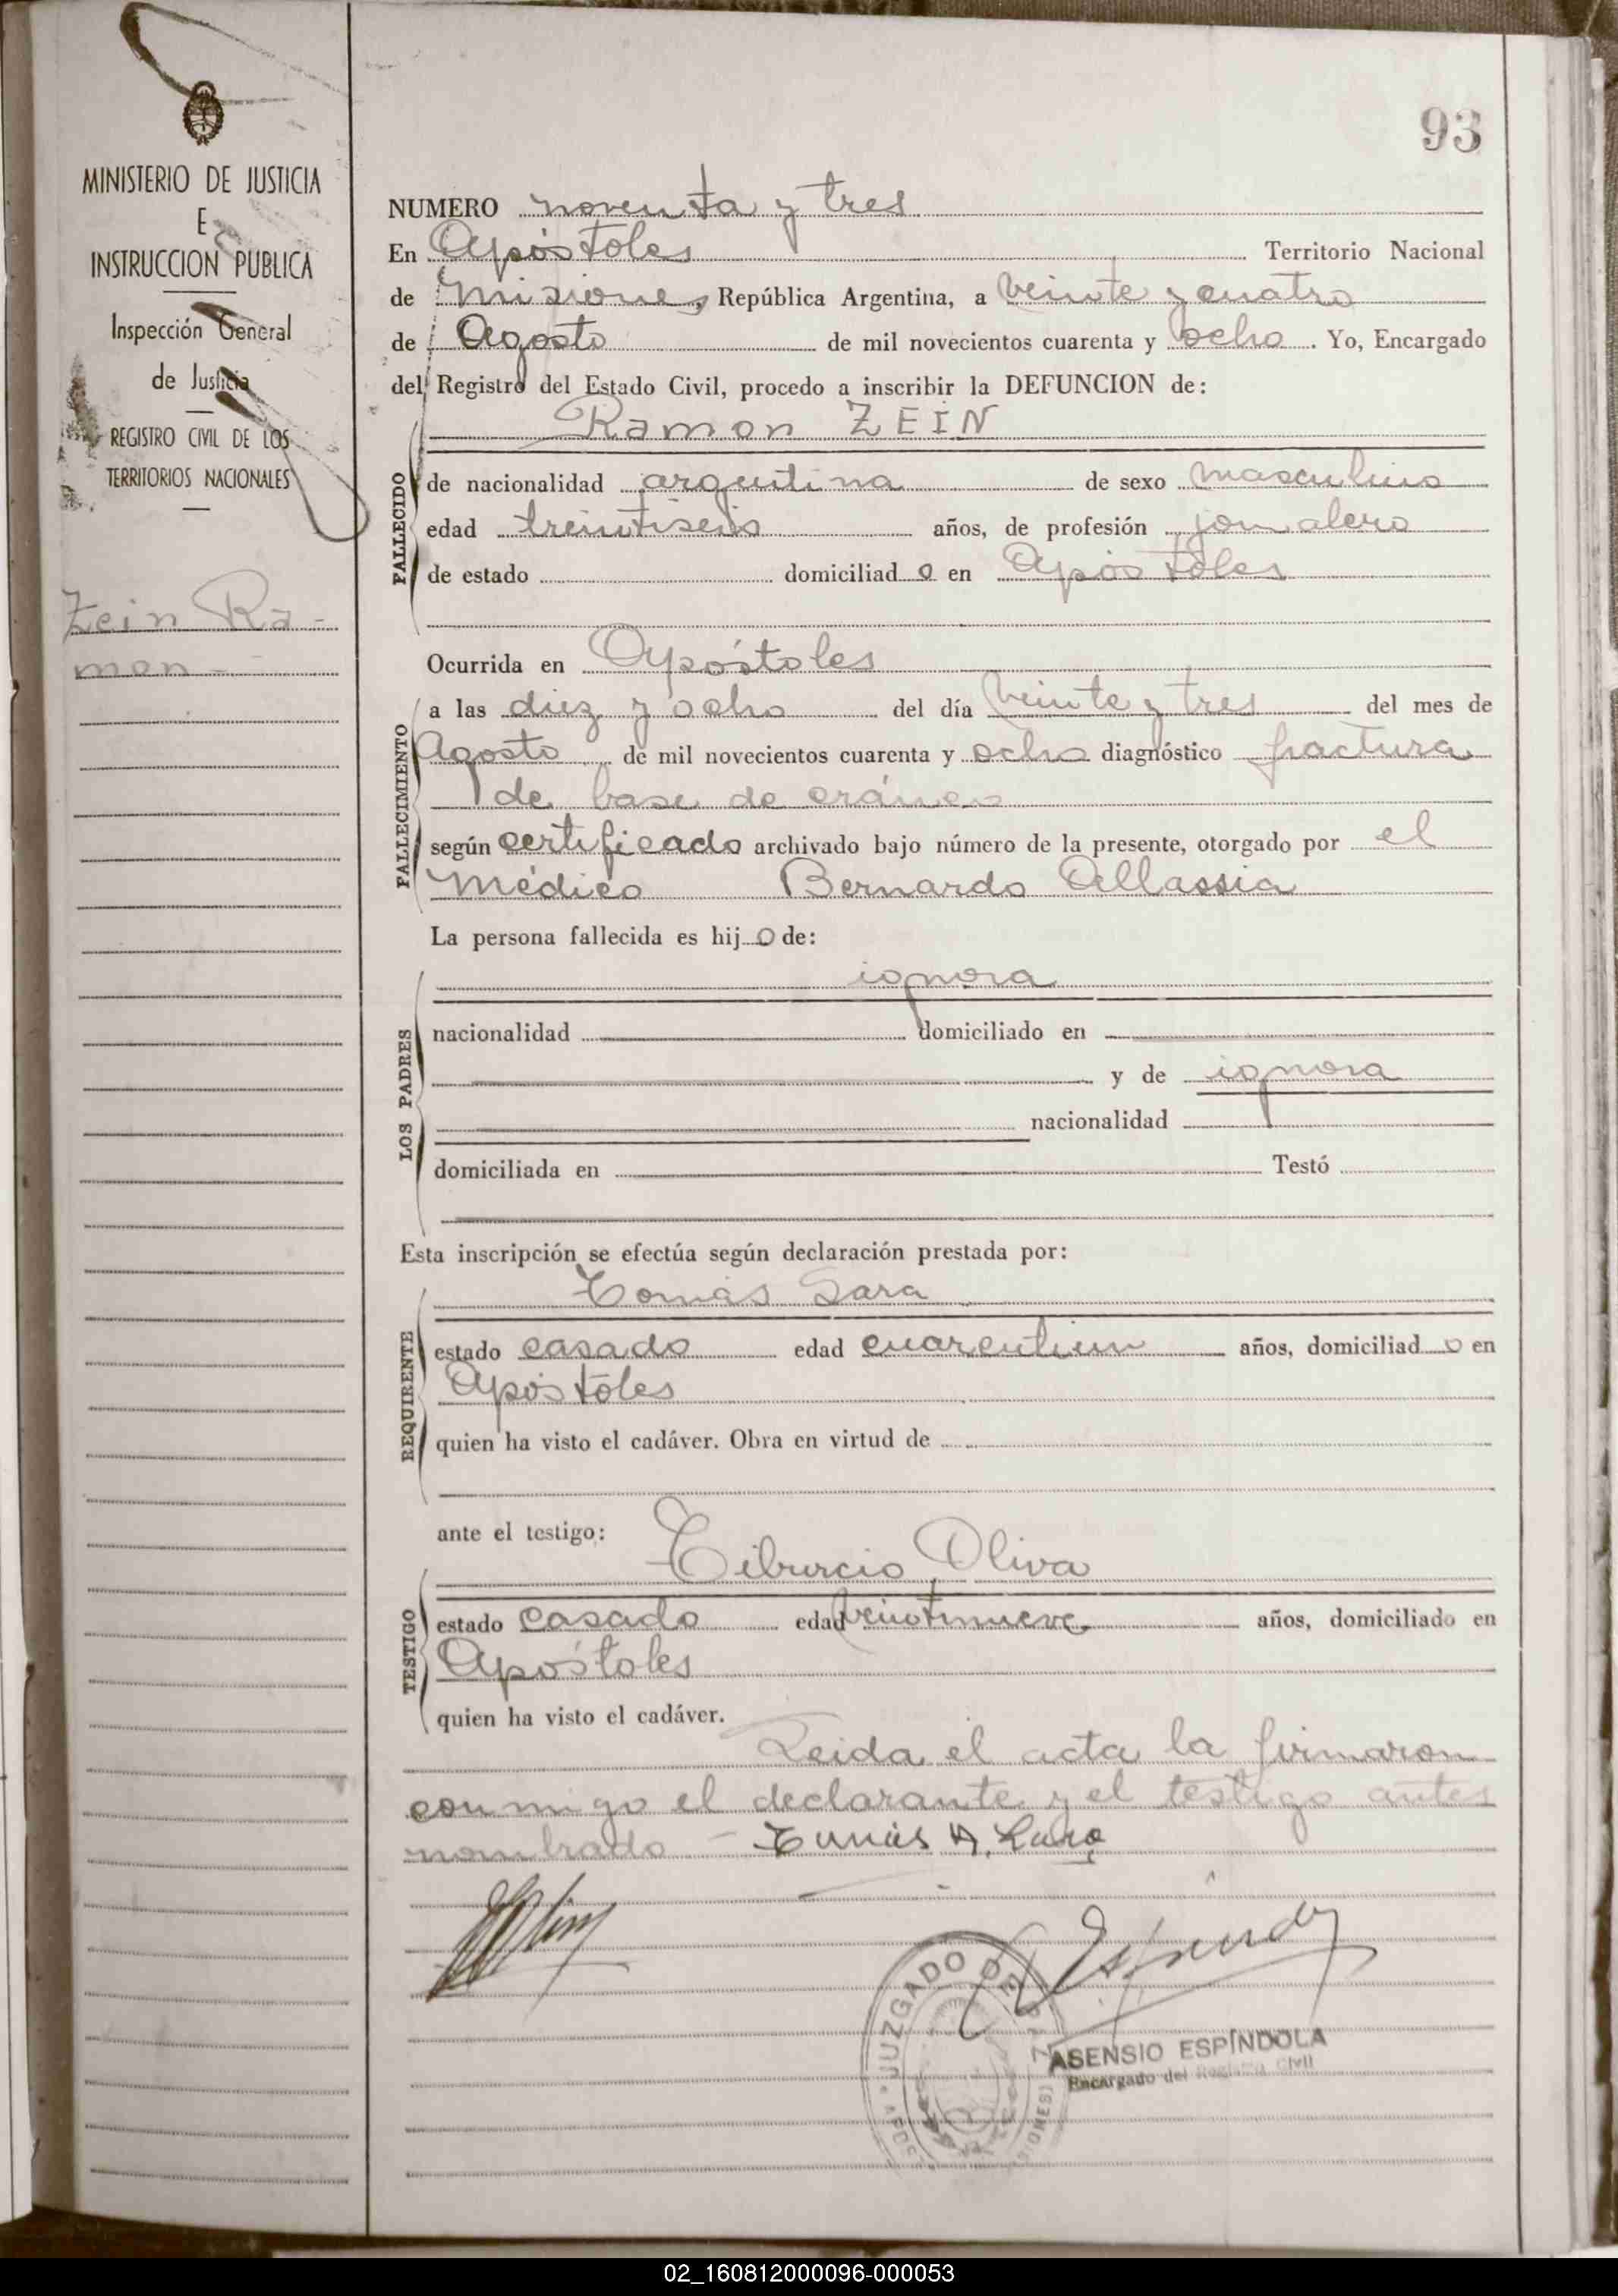 93
MINISTERIO DE JUSTICIA
E
INSTRUCCION PUBLICA
Inspección General
de Justicia
REGISTRO CIVIL DE LOS
TERRITORIOS NACIONALES
Zein Ra-
mon-
NUMERO noventa y tres
En Apóstoles Territorio Nacional
de Misiones, República Argentina, a veinte y cuatro
de Agosto de mil novecientos cuarenta y ocho. Yo, Encargado
del Registro del Estado Civil, procedo a inscribir la DEFUNCION de:
Ramon ZEIN
FALLECIDO
de nacionalidad argentina de sexo masculino
edad treintiseis años, de profesión jornalero
de estado domiciliado en Apóstoles
Ocurrida en Apóstoles
FALLECIMIENTO
a las diez y ocho del día veinte y tres del mes de
Agosto de mil novecientos cuarenta y ocho diagnóstico fractura
de base de cráneo
según certificado archivado bajo número de la presente, otorgado por el
Médico Bernardo Allassia
La persona fallecida es hijo de:
LOS PADRES
ignora
nacionalidad domiciliado en
y de ignora
nacionalidad
domiciliada en Testó
Esta inscripción se efectúa según declaración prestada por:
REQUIRENTE
Tomás Lara
estado casado edad cuarentiun años, domiciliado en
Apóstoles
quien ha visto el cadáver. Obra en virtud de
ante el testigo:
Tiburcio Oliva
TESTIGO
estado casado edad veintinueve años, domiciliado en
Apóstoles
quien ha visto el cadáver.
Leida el acta la firmaron
conmigo el declarante y el testigo antes
nombrado - Tomás A. Lara
JUZGADO DE
ASENSIO ESPÍNDOLA
Encargado del Registro Civil
02_160812000096-000053